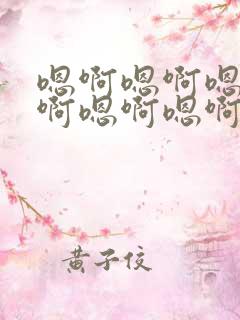 嗯啊嗯啊嗯
啊嗯啊嗯啊
黄子佼